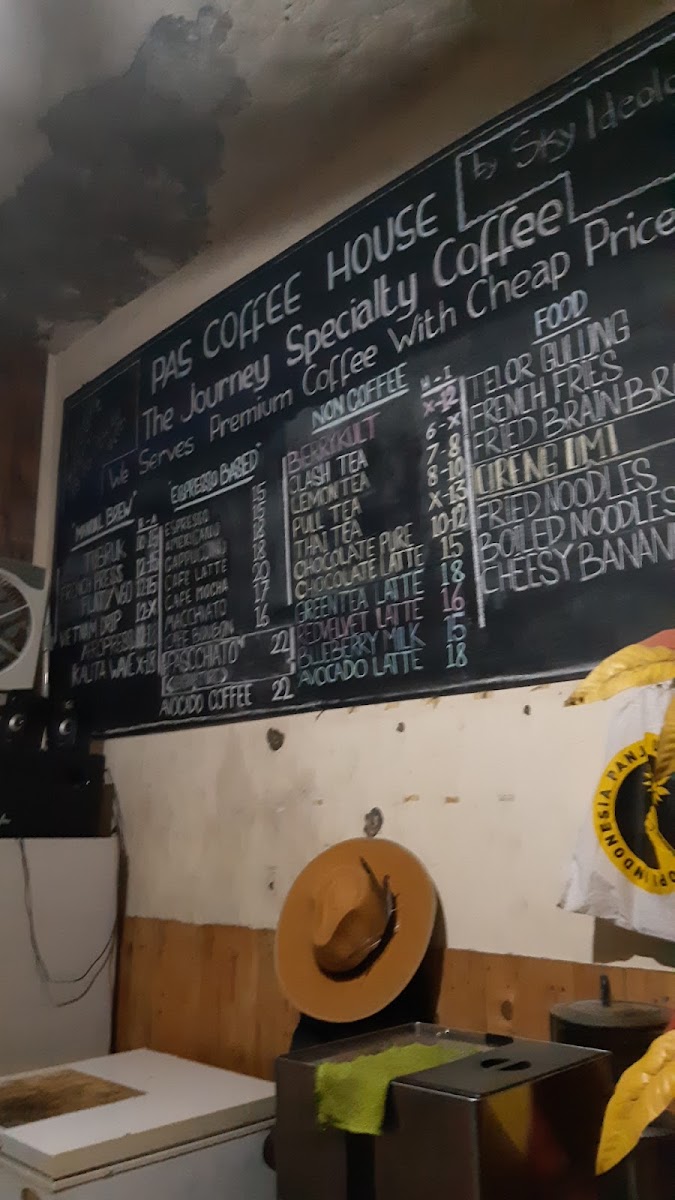 by Sky Ideolo
PAS COFFEE HOUSE
The Journey Specialty Coffee
We Serves Premium Coffee With Cheap Price
"MANUAL BREW"
TUBRUK
FRENCH PRESS
FLAT/V60
VIETNAM DRIP
AEROPRESS
KALITA WAVE X-18
"ESPRESSO BASED"
ESPRESSO 15
AMERICANO
CAPPUCINO
CAFE LATTE
CAFE MOCHA 20
MACCHIATO 17
CAFE BONBON 16
PASCCHIATO 22
AVOCIDO COFFEE 22
NON COFFEE H - I
BERRYKULT X-12
CLASH TEA 6-X
LEMON TEA 7-8
PULL TEA 8-10
THAI TEA X-13
CHOCOLATE PURE 10-12
CHOCOLATE LATTE 15
GREENTEA LATTE 18
REDVELVET LATTE 16
BLUEBERRY MILK 15
AVOCADO LATTE 18
FOOD
TELOR GULUNG
FRENCH FRIES
FRIED BRAIN-BR
CIRENG OMI
FRIED NOODLES
BOILED NOODLES
CHEESY BANAN
INDONESIA PANJ
OPI INDONESIA